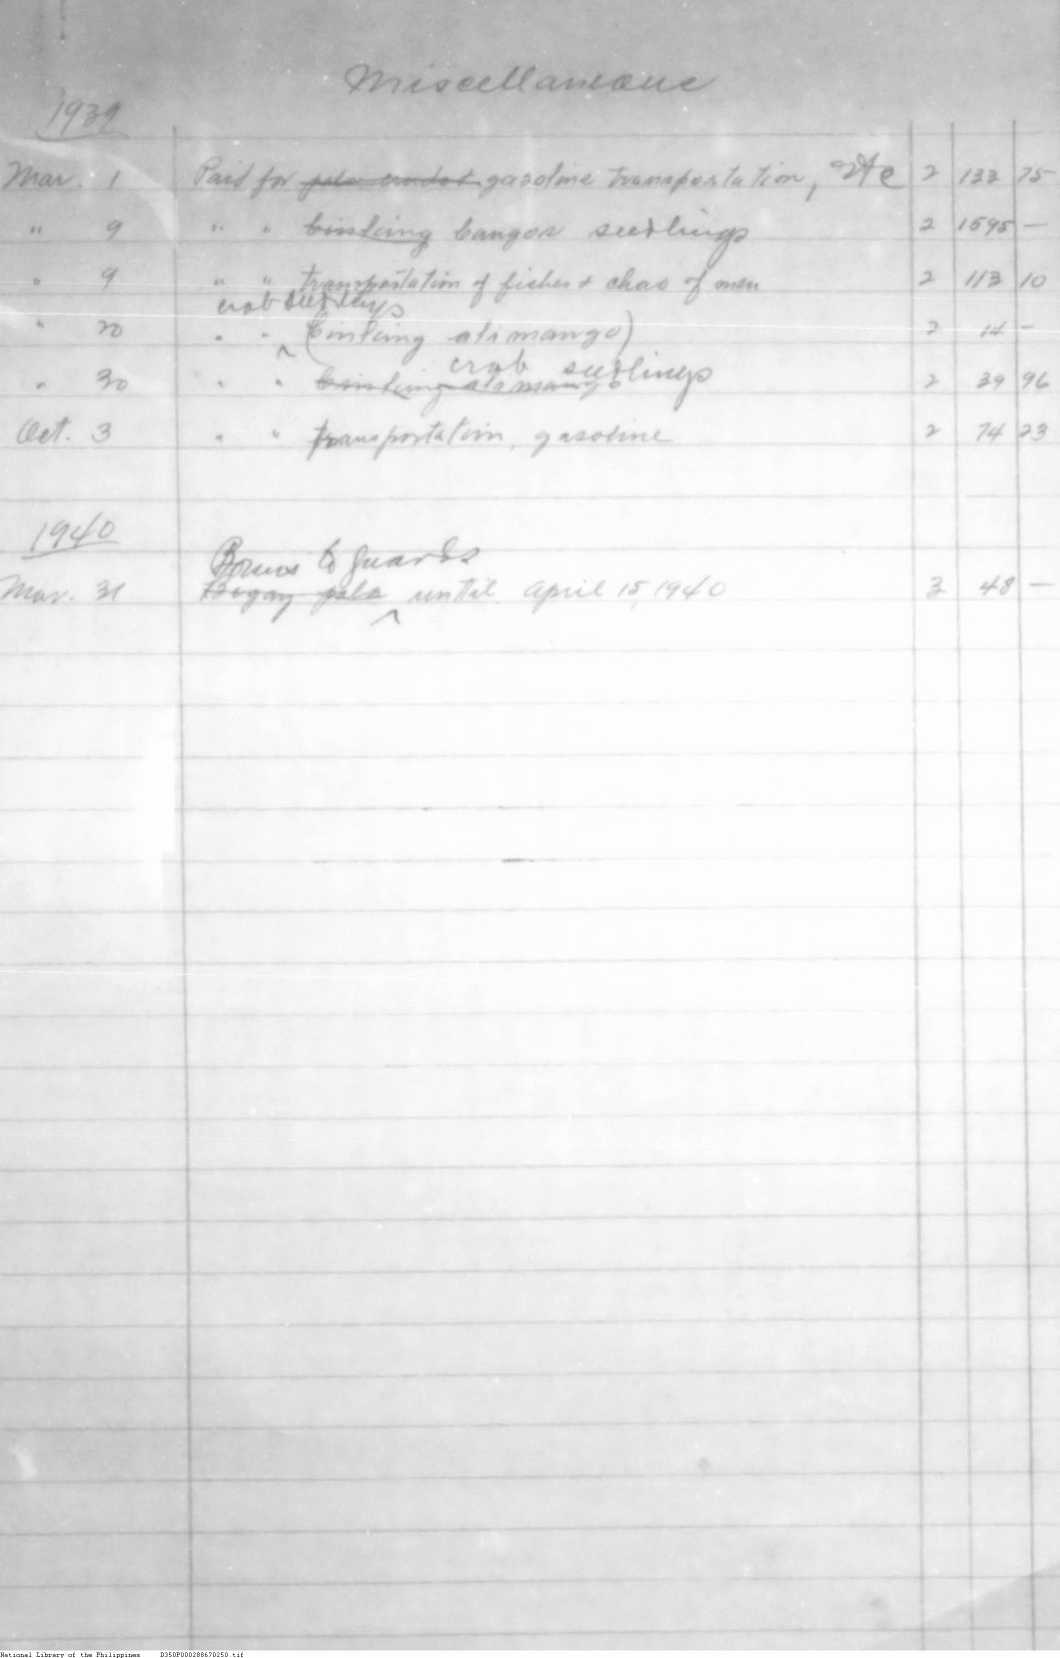 Miscellaneous
1939
Mar. 1 Paid for gasoline transportation, etc 2 133 75
" 9 " " binting bangos seedlings 2 1595 —
" 9 " " transportation of fishes & chao of men 2 113 10
crab seedlings
" 20 " " (binting alimango) 2 14 —
crab seedlings
" 30 " " binting alimango 2 39 96
Oct. 3 " " transportation, gasoline 2 74 23
1940
Bonus to guards
Mar. 31 Bigay pala until April 15, 1940 3 48 —
National Library of the Philippines D350P000288670250.tif